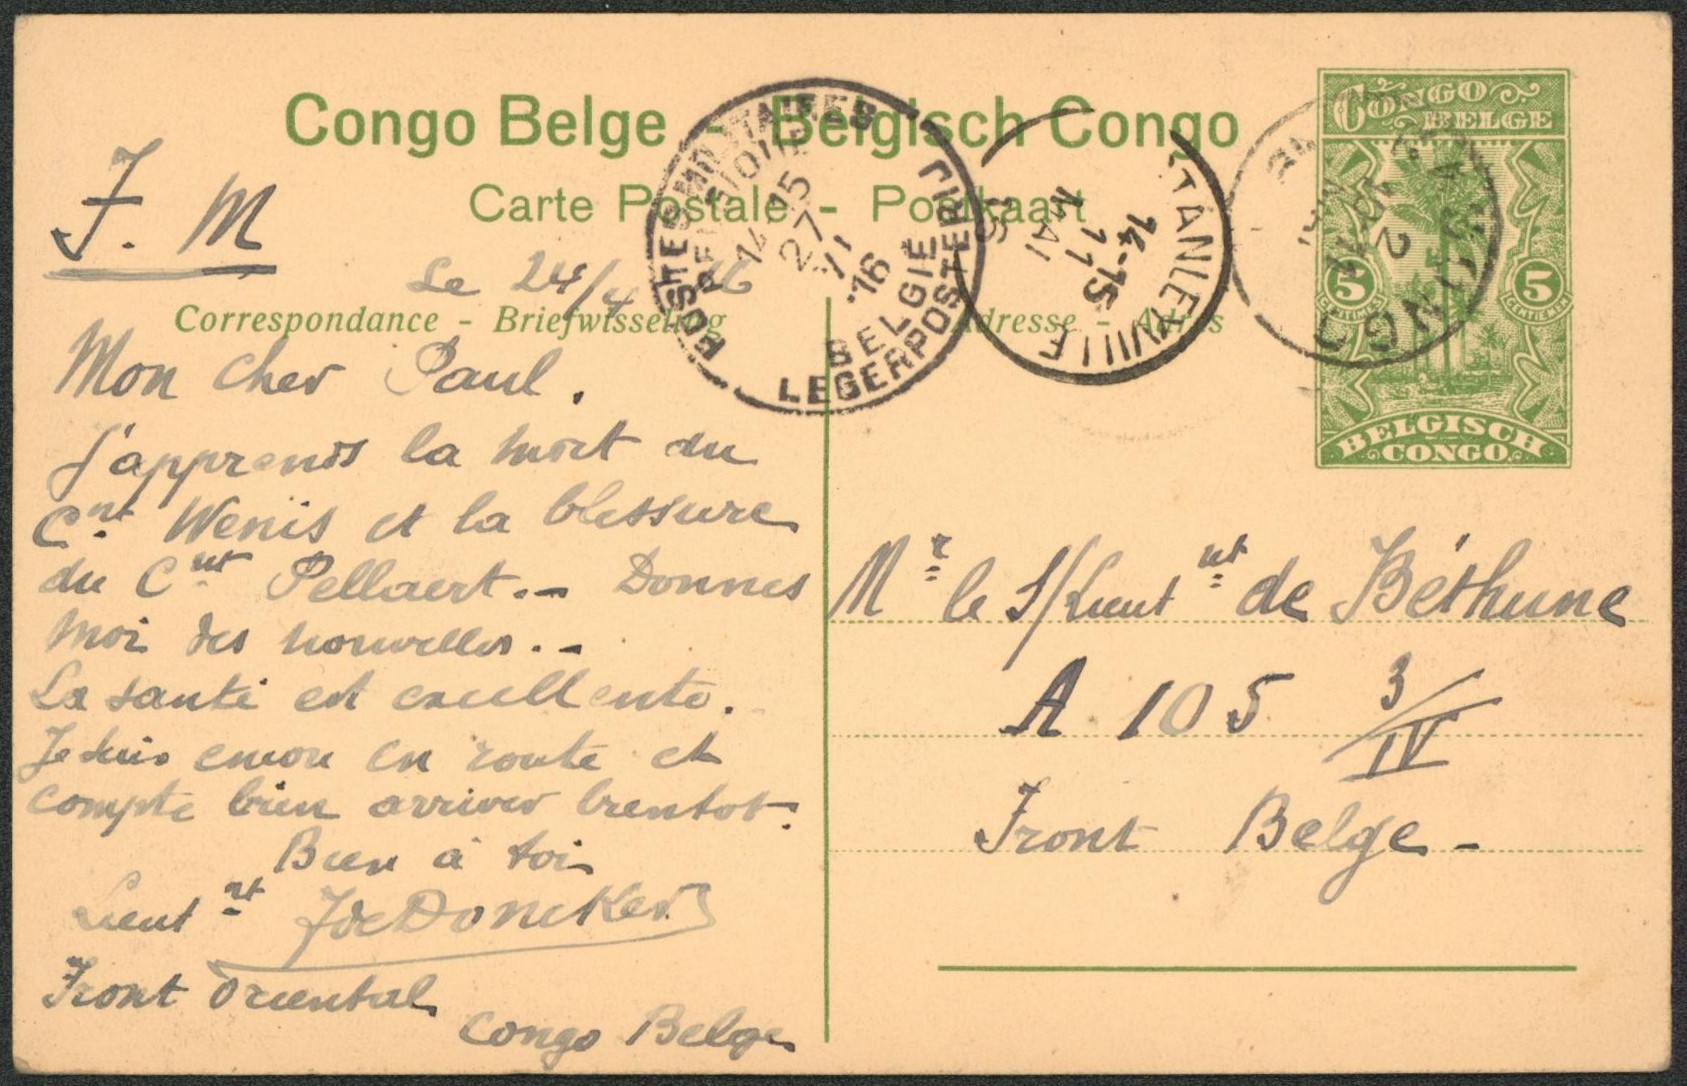 Congo Belge - Belgisch Congo
Carte Postale - Postkaart
CONGO
BELGE
5
CENTIMES
5
CENTIEMEN
BELGISCH
CONGO
POSTES MILITAIRES
BELGIQUE
14-15
27 VI
'16
BELGIË
LEGERPOSTERIJ
STANLEYVILLE
14-15
11
MAI
16
F. M
Le 24/4 16
Correspondance - Briefwisseling
Adresse - Adres
Mon cher Paul.
J'apprends la mort du
Cnt Wenis et la blessure
du Cnt Pellaert.- Donnes
moi des nouvelles.-
La santé est excellente.
Je suis encor en route et
compte bien arriver bientot.
Bien à toi
Lieutnt J de Doncker
Front Oriental
Congo Belge
Mr le S/Lieutnt de Béthune
A 105 3/IV
Front Belge -